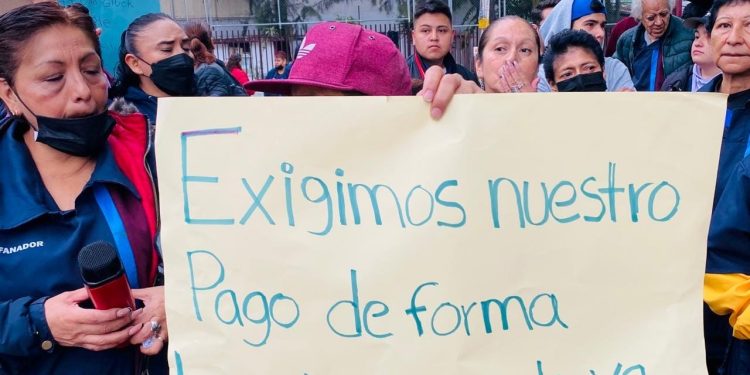 Exigimos nuestro
Pago de forma
FANADOR